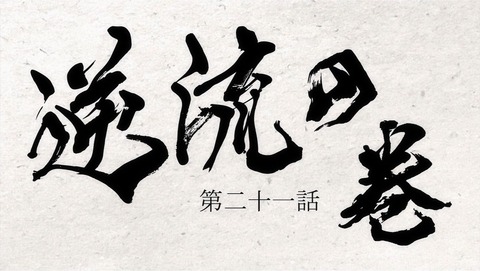 逆流の巻
第二十一話